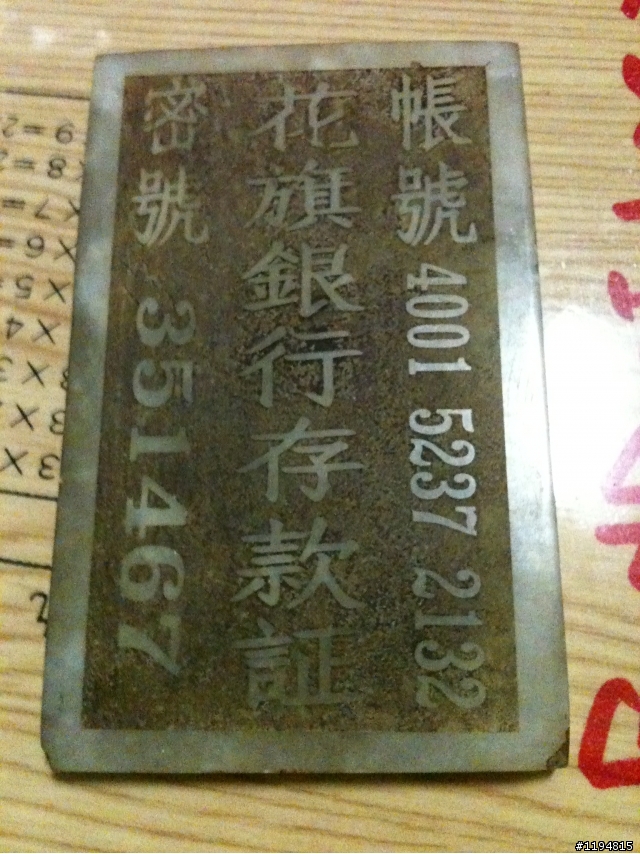 帳號 4001 5237 2132
花旗銀行存款証
密號 351467
#1194815